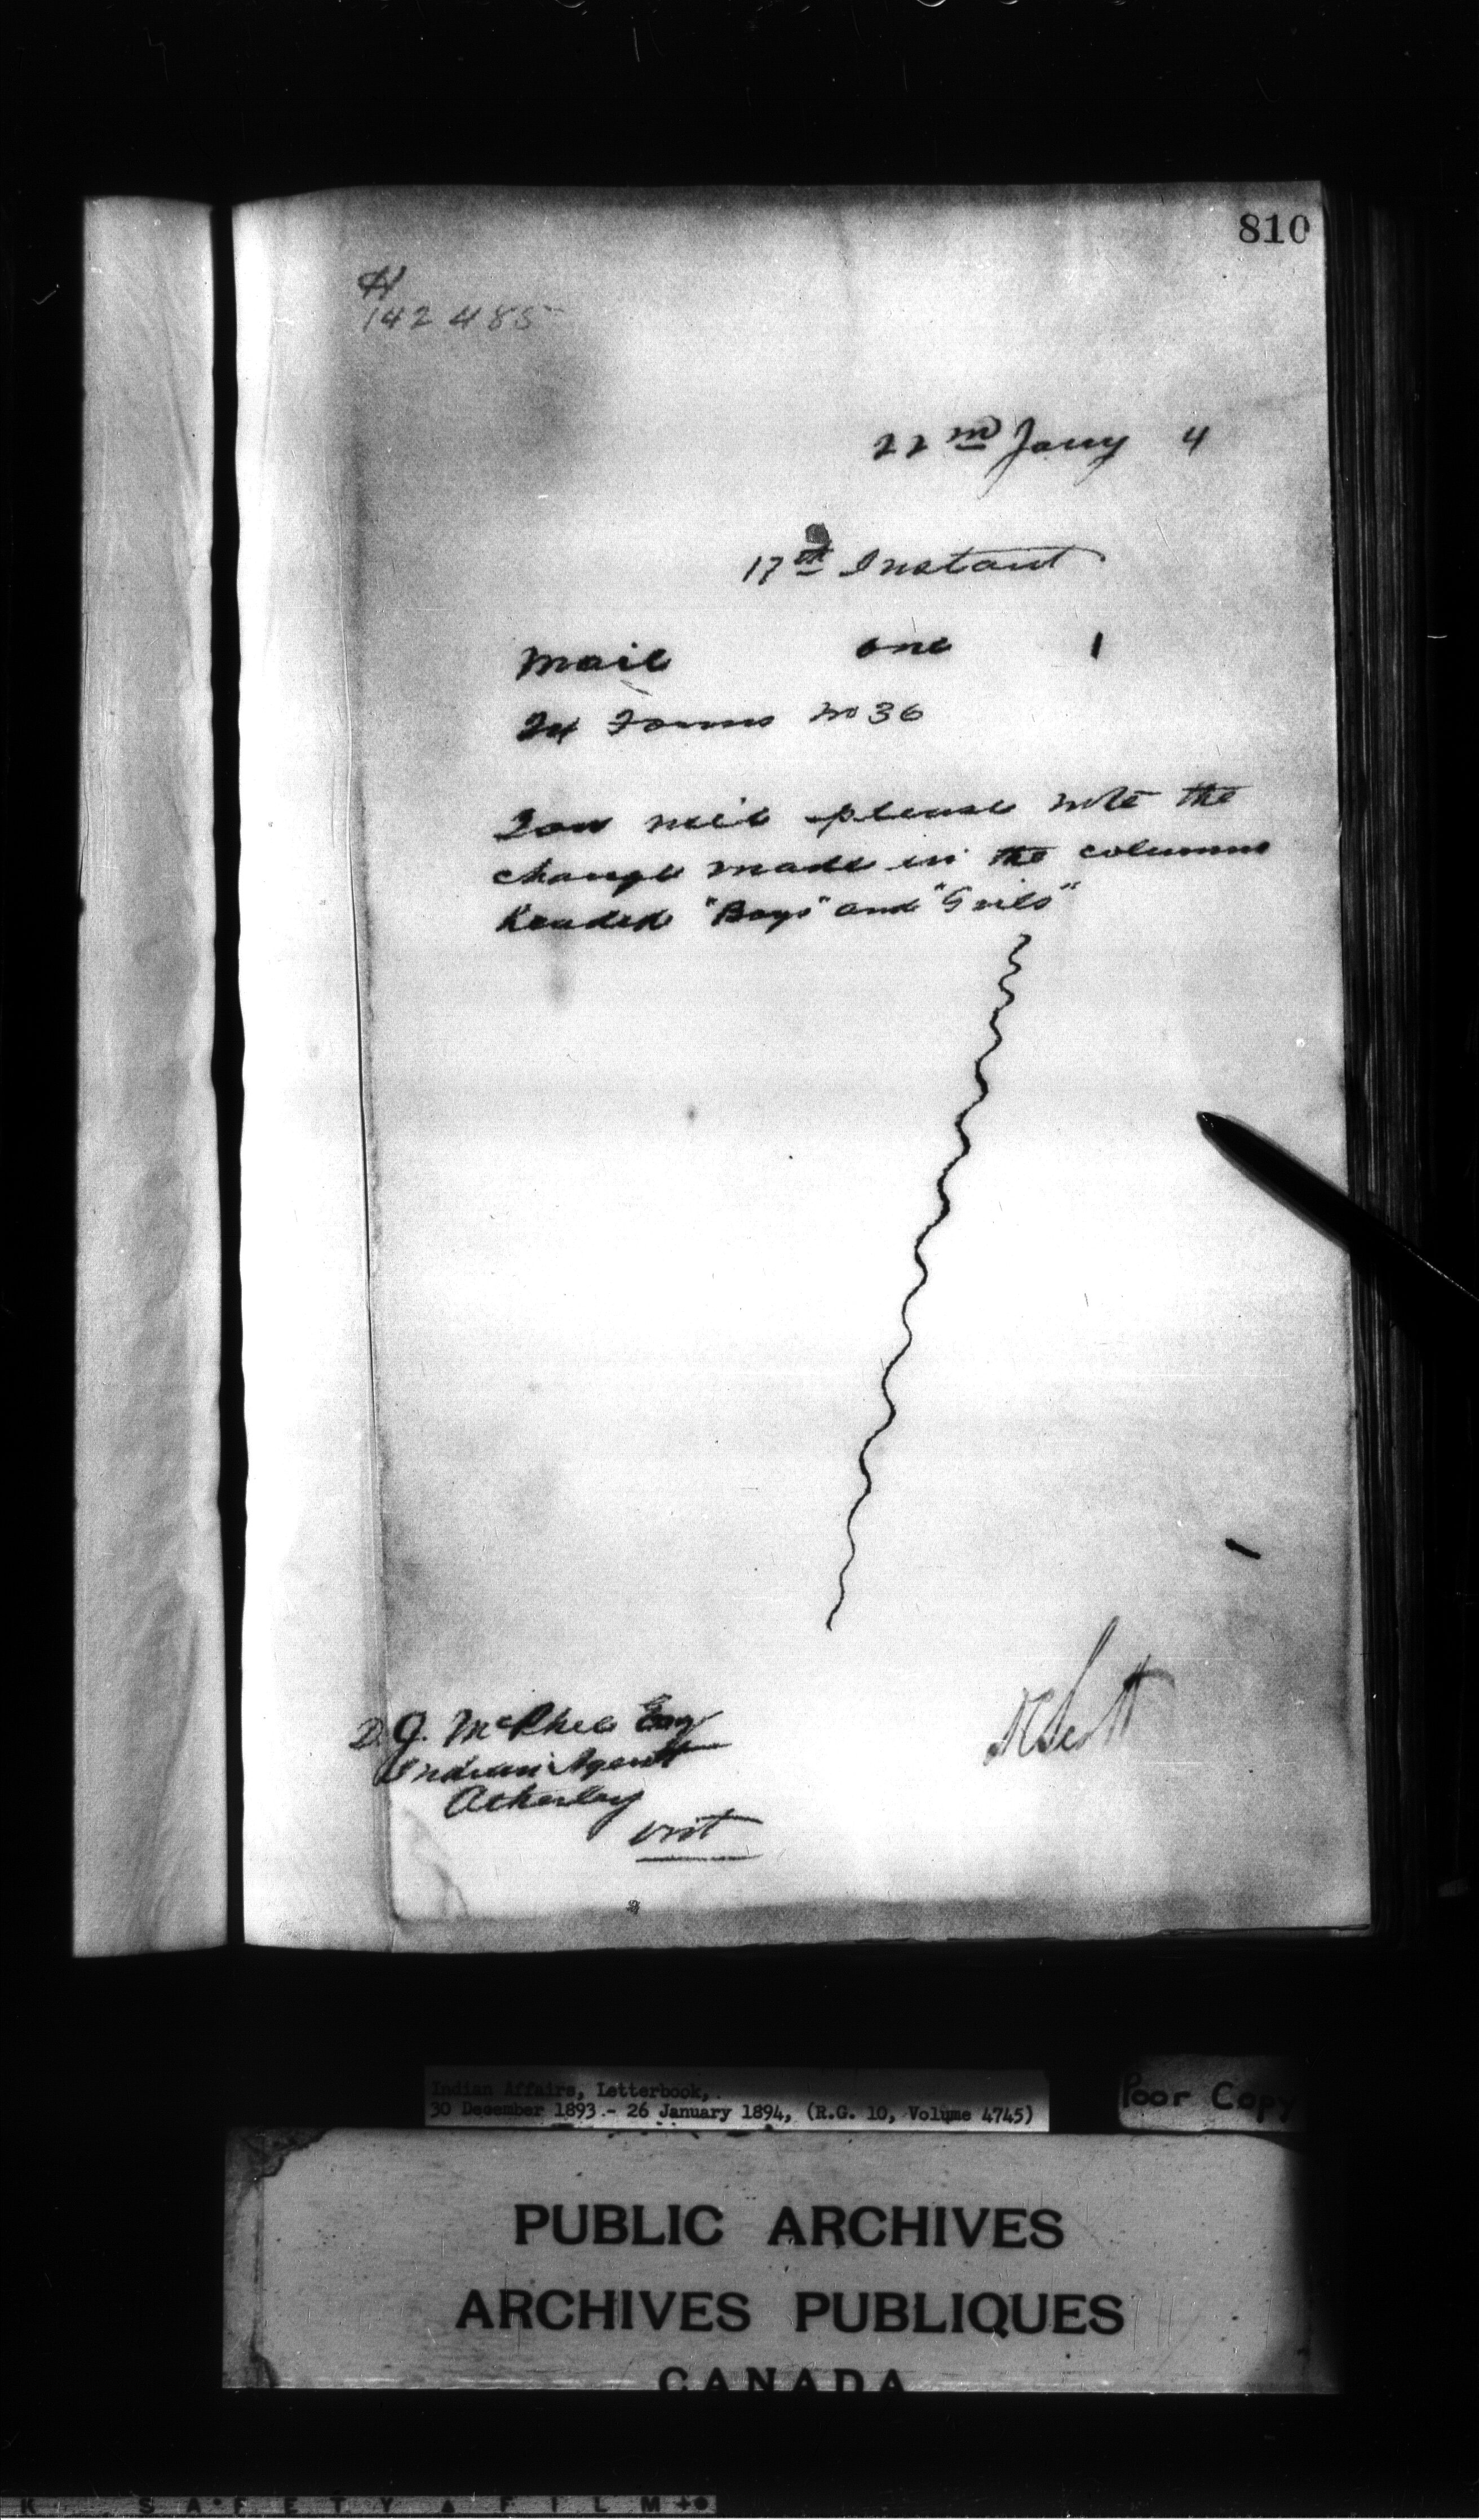 810
H
142485
22nd Jany 4
17th Instant
Mail one 1
24 Forms No 36
You will please note the
change made in the columns
headed "Boys" and "Girls"
D.C. Scott
D.J. McPhee Esq
Indian Agent
Atherley
Ont
Indian Affairs, Letterbook,
30 December 1893 - 26 January 1894, (R.G. 10, Volume 4745)
Poor Copy
PUBLIC ARCHIVES
ARCHIVES PUBLIQUES
CANADA
K SAFETY FILM